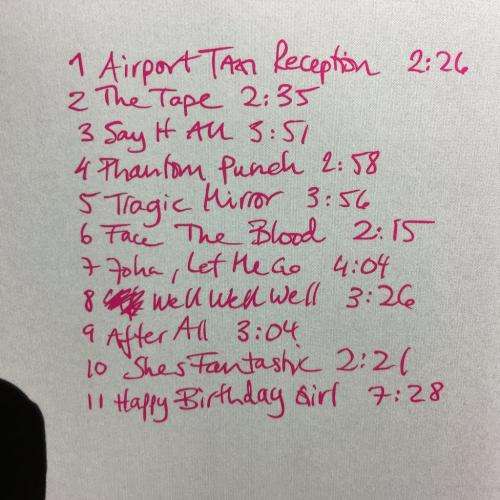 1 Airport Taxi Reception 2:26
2 The Tape 2:35
3 Say It All 3:51
4 Phantom Punch 2:58
5 Tragic Mirror 3:56
6 Face The Blood 2:15
7 John, Let Me Go 4:04
8 Well Well Well 3:26
9 After All 3:04
10 Shes Fantastic 2:21
11 Happy Birthday Girl 7:28